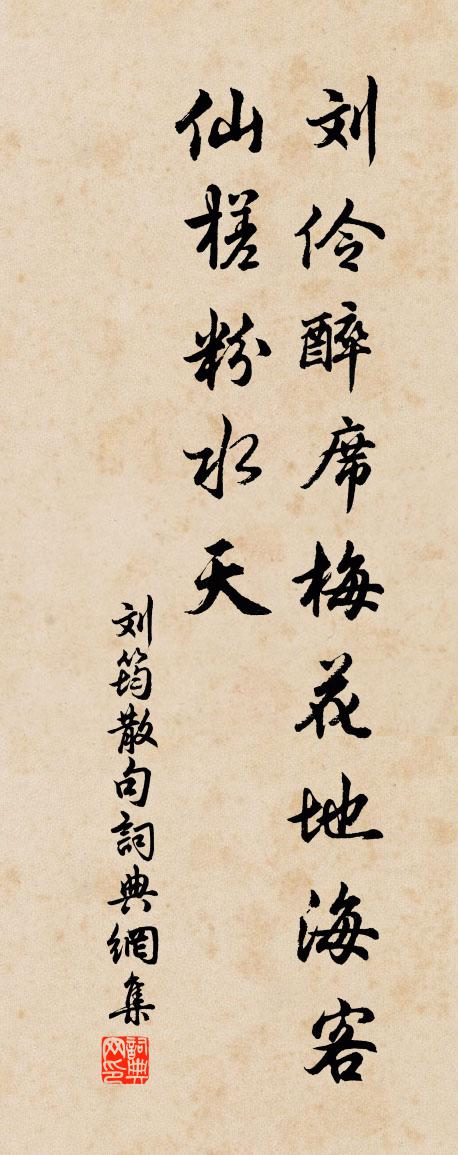 刘伶醉席梅花地海客
仙槎粉水天
刘筠散句詞典網集
詞典
网印